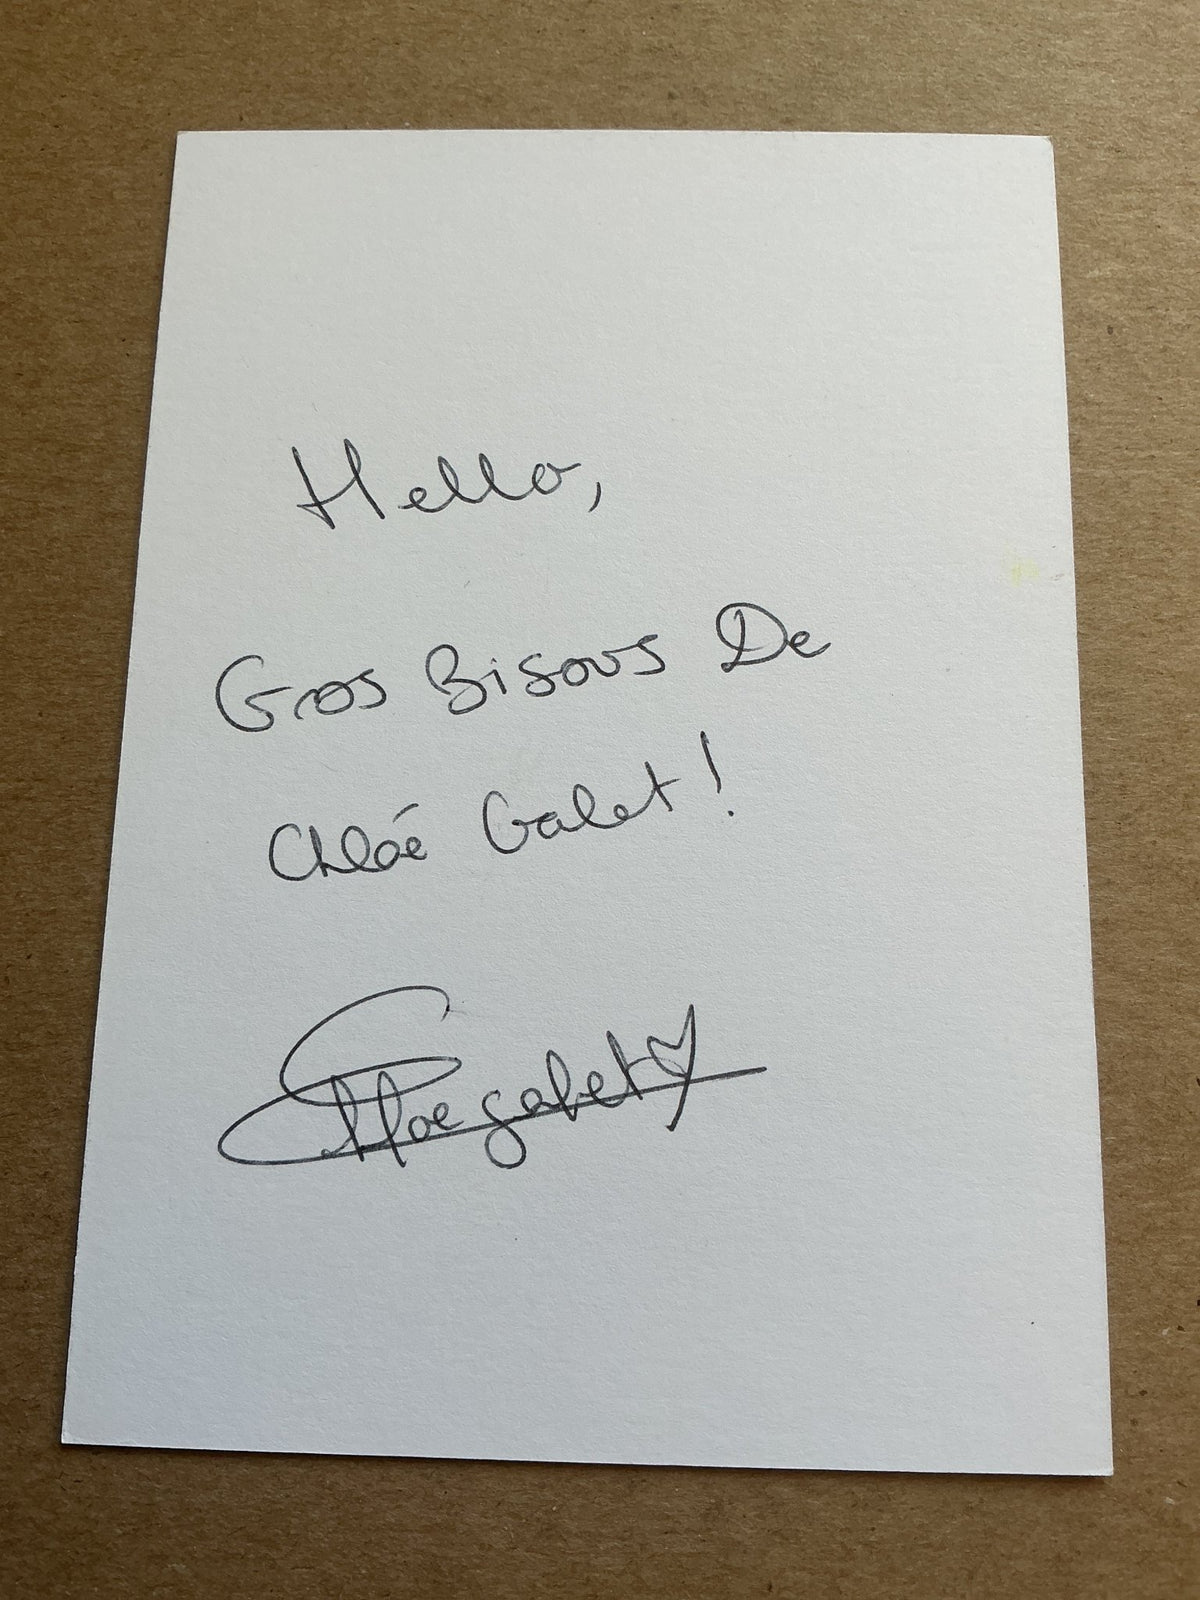 Hello,
Gros Bisous De
Chloé Galet !
Chloe galet